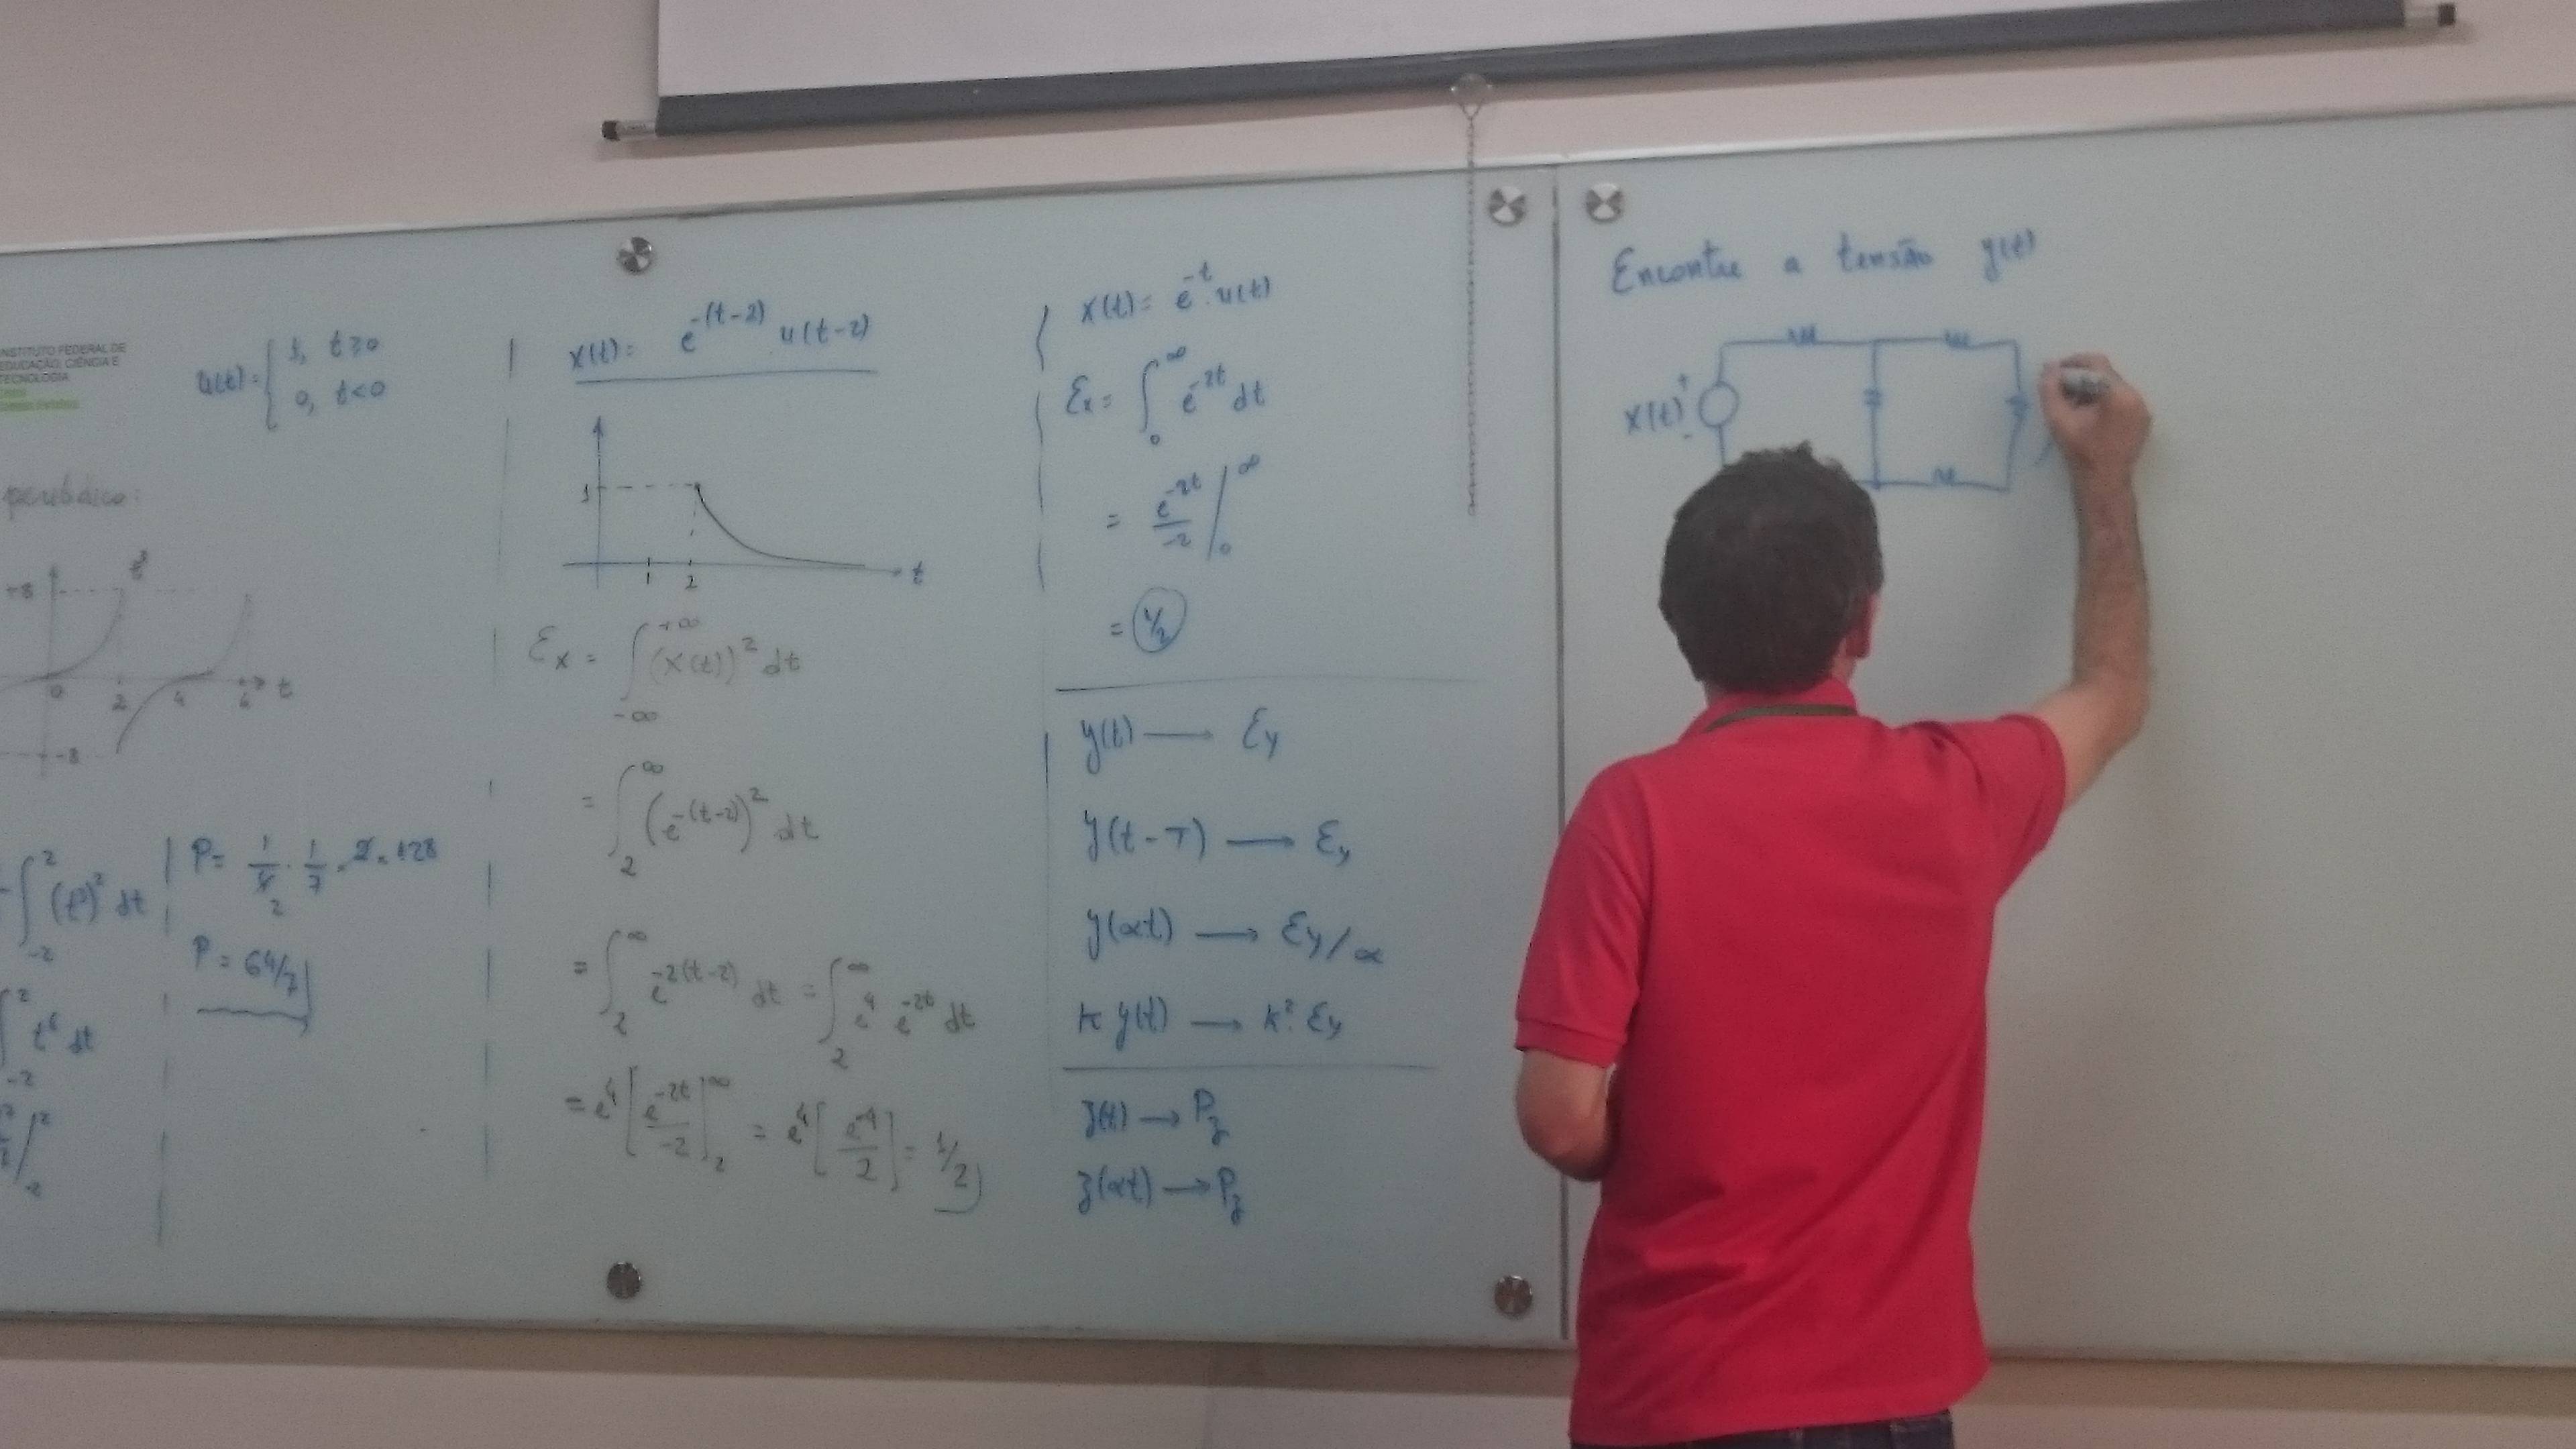 INSTITUTO FEDERAL DE
EDUCAÇÃO, CIÊNCIA E
TECNOLOGIA
u(t) = { 1, t ≥ 0
0, t < 0
periódico:
+8
t³
0 2 4 6 t
-8
∫_{-2}^{2} (t³)² dt
t⁶ dt
P = 1/4 2 · 1/7 · 2 · 128
P = 64/7
x(t) = e^{-(t-2)} u(t-2)
1
1 2 t
Ex = ∫_{-∞}^{+∞} (x(t))² dt
= ∫_{2}^{∞} (e^{-(t-2)})² dt
= ∫_{2}^{∞} e^{-2(t-2)} dt = ∫_{2}^{∞} e⁴ e^{-2t} dt
= e⁴ [e^{-2t}/-2]_{2}^{∞} = e⁴ [e^{-4}/2] = 1/2
x(t) = e^{-t} · u(t)
Ex = ∫_{0}^{∞} e^{-2t} dt
= e^{-2t}/-2 |_{0}^{∞}
= 1/2
y(t) → Ey
y(t-τ) → Ey
y(αt) → Ey/α
k y(t) → k² · Ey
z(t) → Pz
z(αt) → Pz
Encontre a tensão y(t)
x(t) + -